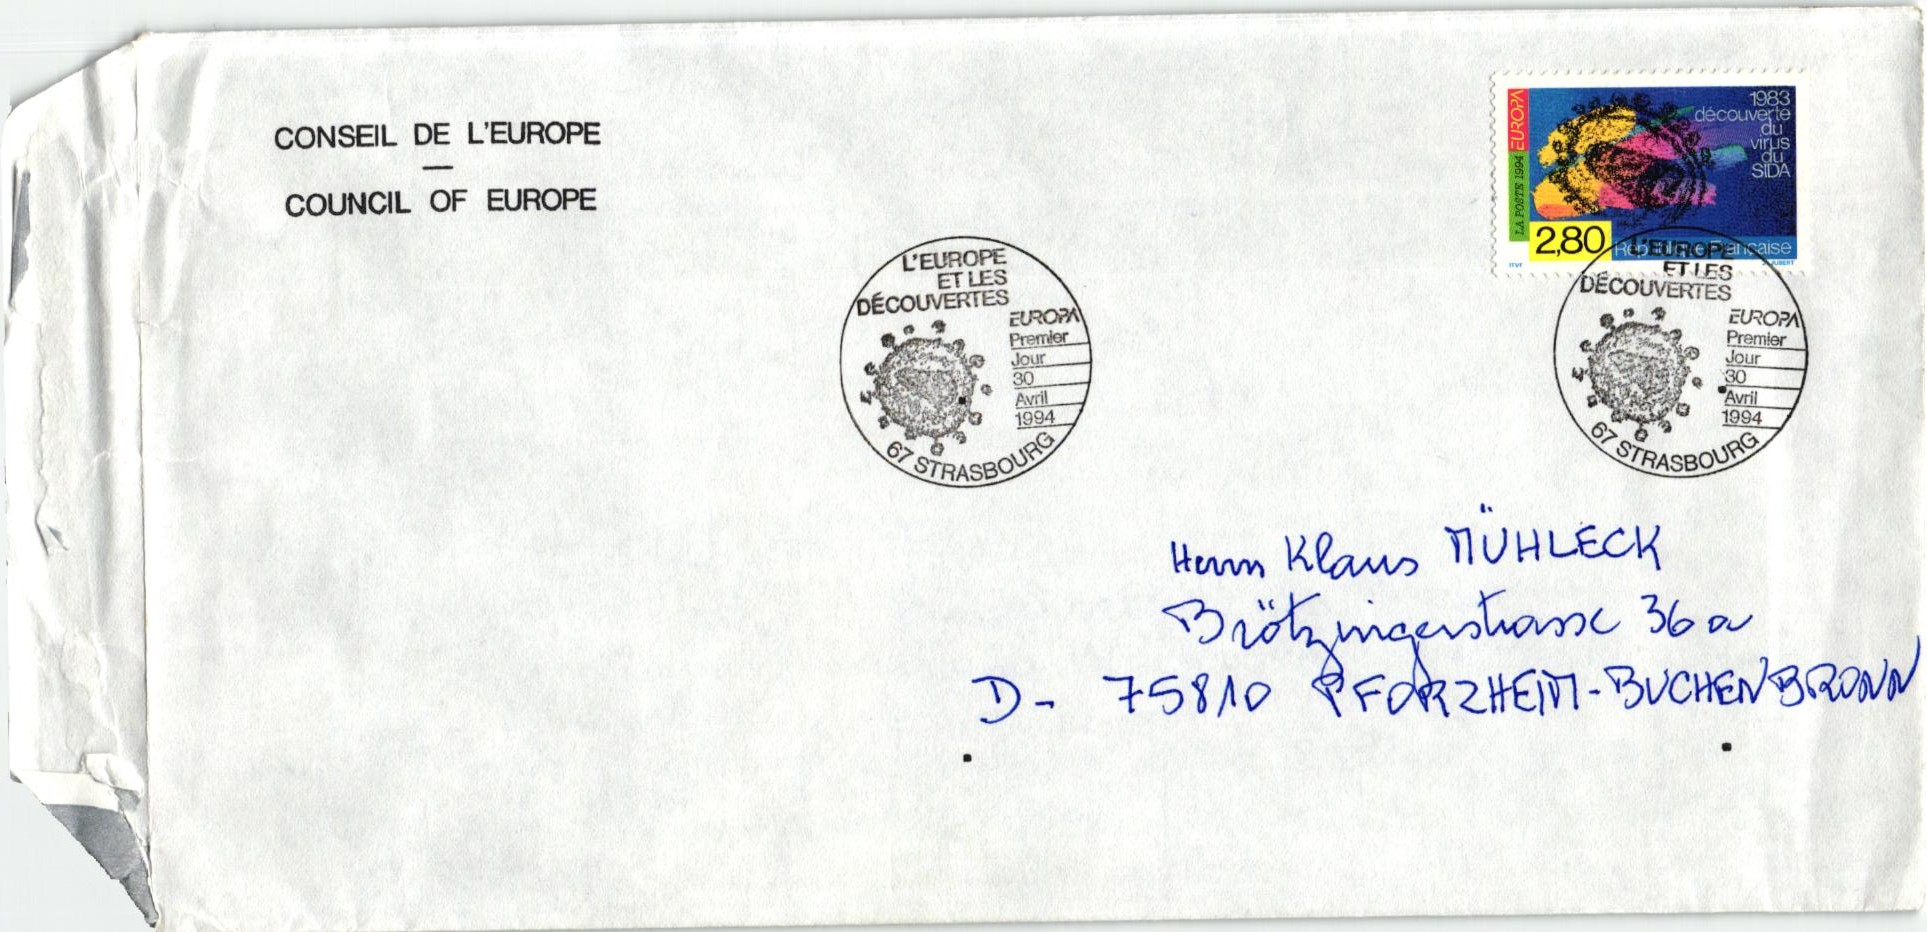 CONSEIL DE L'EUROPE
—
COUNCIL OF EUROPE
1983
découverte
du
virus
du
SIDA
EUROPA
LA POSTE 1994
2,80
République Française
ITVF
L'EUROPE
ET LES
DÉCOUVERTES
EUROPA
Premier
Jour
30
Avril
1994
67 STRASBOURG
L'EUROPE
ET LES
DÉCOUVERTES
EUROPA
Premier
Jour
30
Avril
1994
67 STRASBOURG
Herrn Klaus MÜHLECK
Brötzingerstrasse 36a
D- 75810 PFORZHEIM-BUCHENBRONN